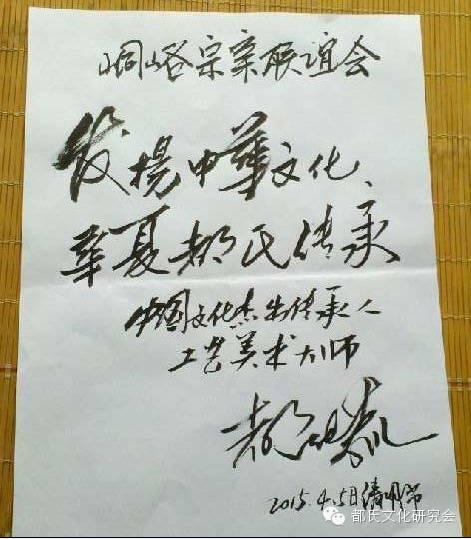 峒峪宗亲联谊会
发揚中華文化、
華夏都氏传承
中国文化杰出传承人
工艺美术大师
都
2015.4.5日清明节
都氏文化研究会